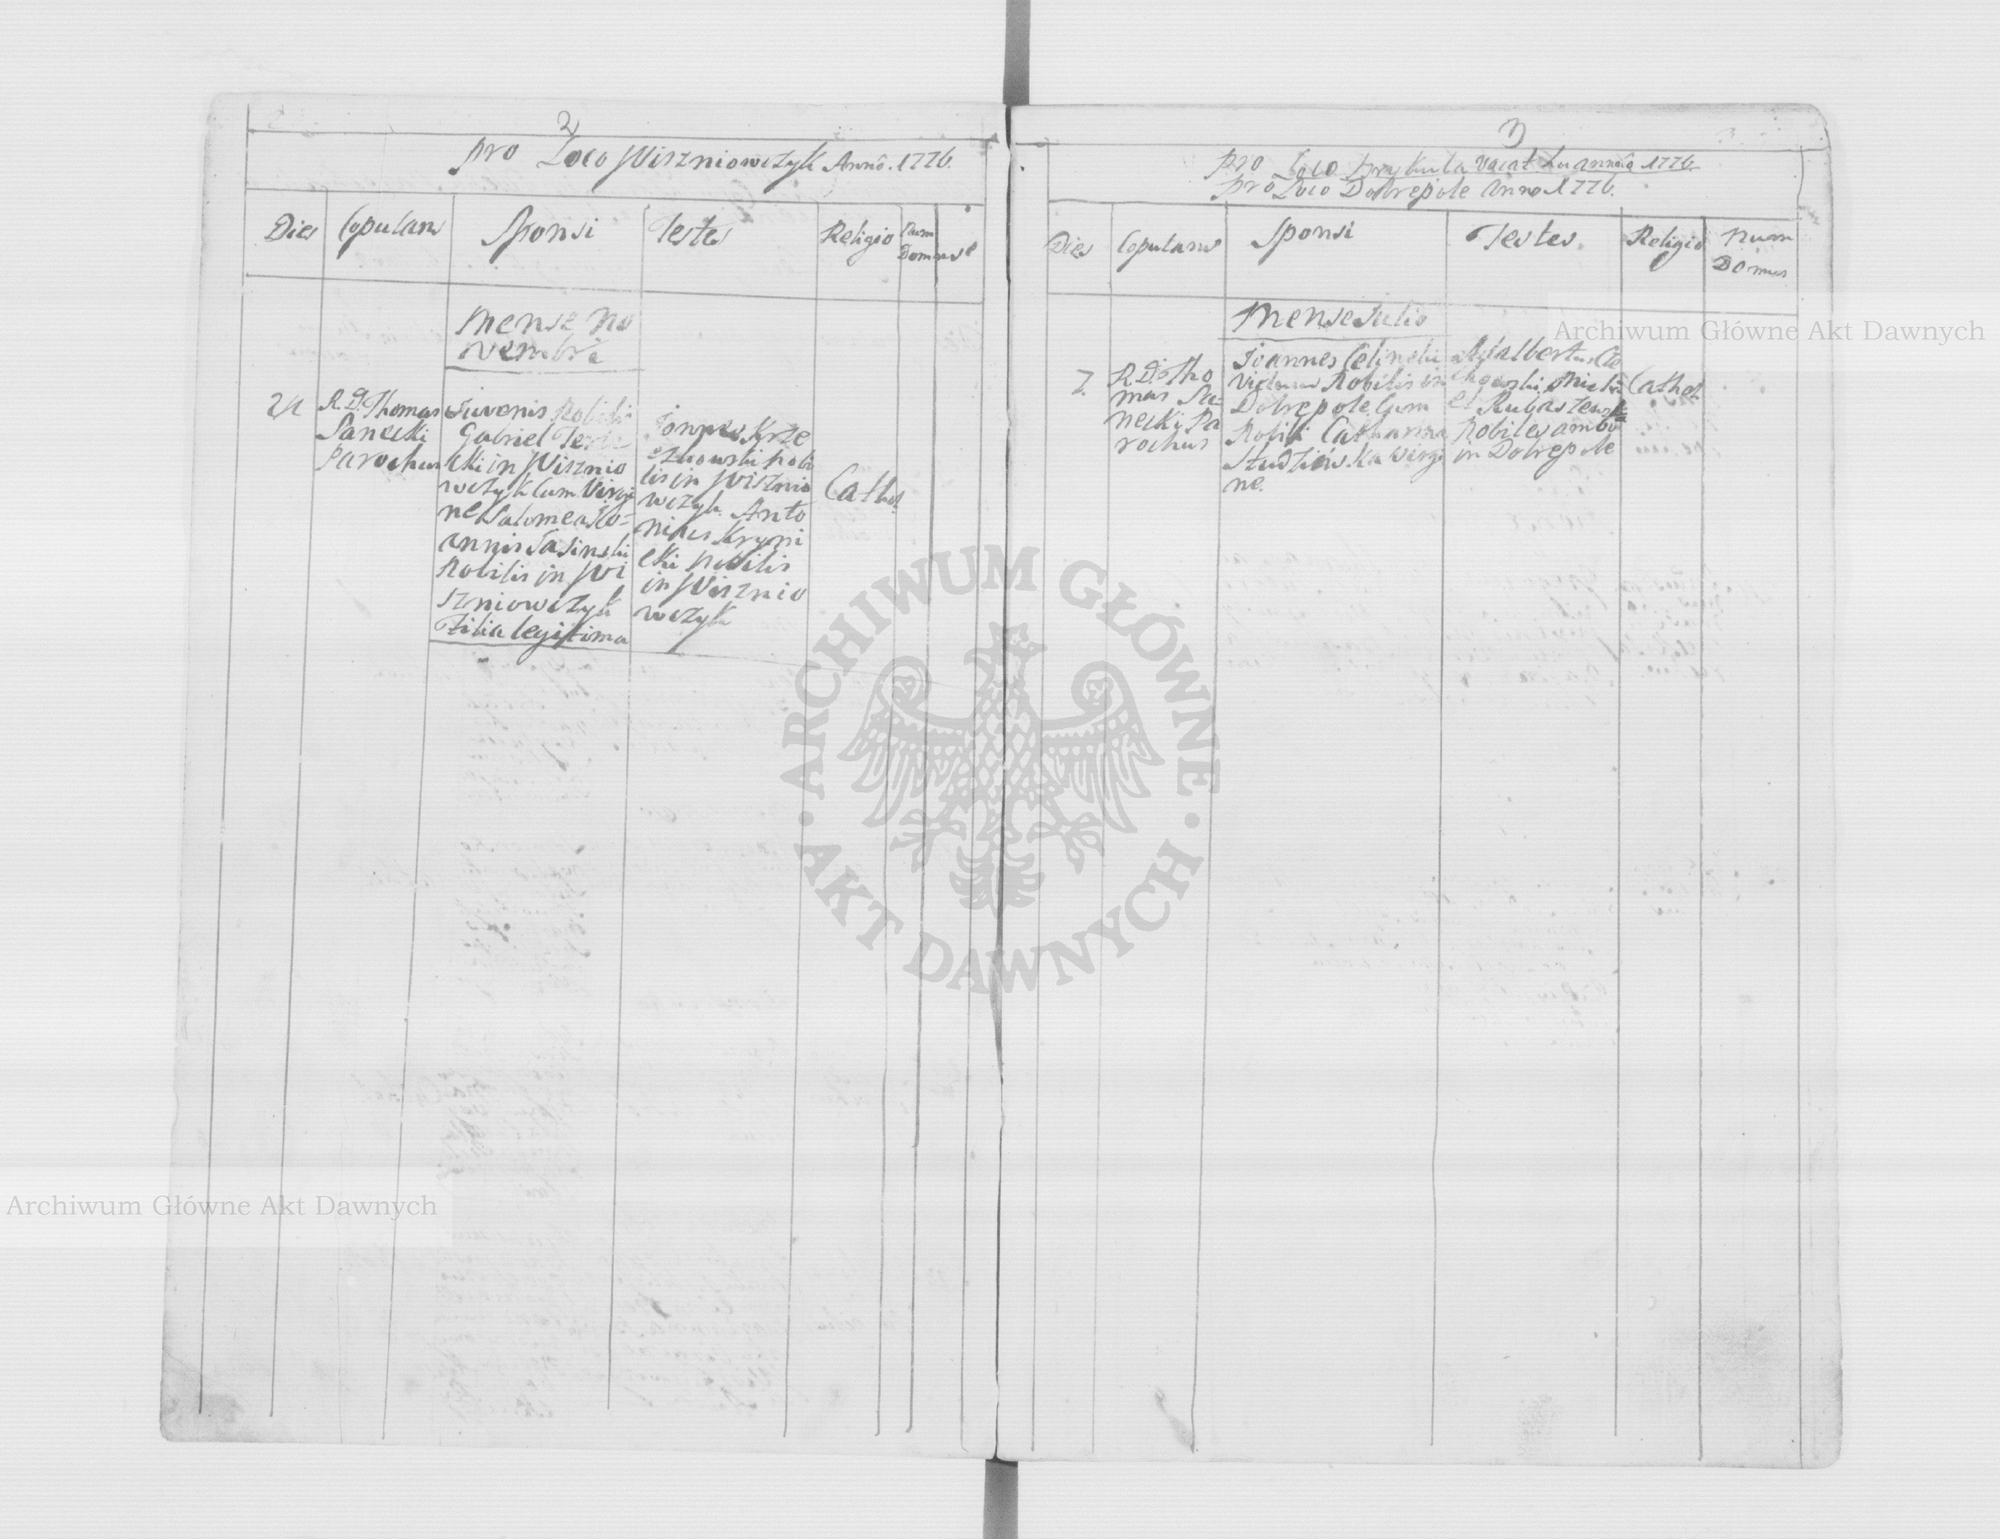 2
pro Loco Wiszniowczyk Anno. 1776.
Dies Copulans Sponsi Testes Religio Num Domus
Mense No
vembri
R. D. Thomas
Sanecki
Parochus
Juvenis Nobilis
Gabriel
cki in Wisznio
wczyk Cum Virgi
ne Salomea Jo=
annis Jasinski
Nobilis in Wi
szniowczyk
Filia legitima
Krze
czkowski Nobi
lis in Wisznio
wczyk. Anto
nius Kryni
cki Nobilis
in Wisznio
wczyk
Cathol.
3
pro Loco vacat Anno 1776.
pro Loco Dobrepole Anno 1776.
Dies Copulans Sponsi Testes. Religio Num
Domus
Mense Julio
7.
R. D. Tho
mas Sa=
necki Pa
rochus
Joannes Celinski
Viduus Nobilis in
Dobrepole Cum
Nobili Catharina
Virgi
ne.
Adalbertus
et
Nobiles ambo
in Dobrepole
Cathol.
Archiwum Główne Akt Dawnych
ARCHIWUM GŁÓWNE · AKT DAWNYCH ·
Archiwum Główne Akt Dawnych